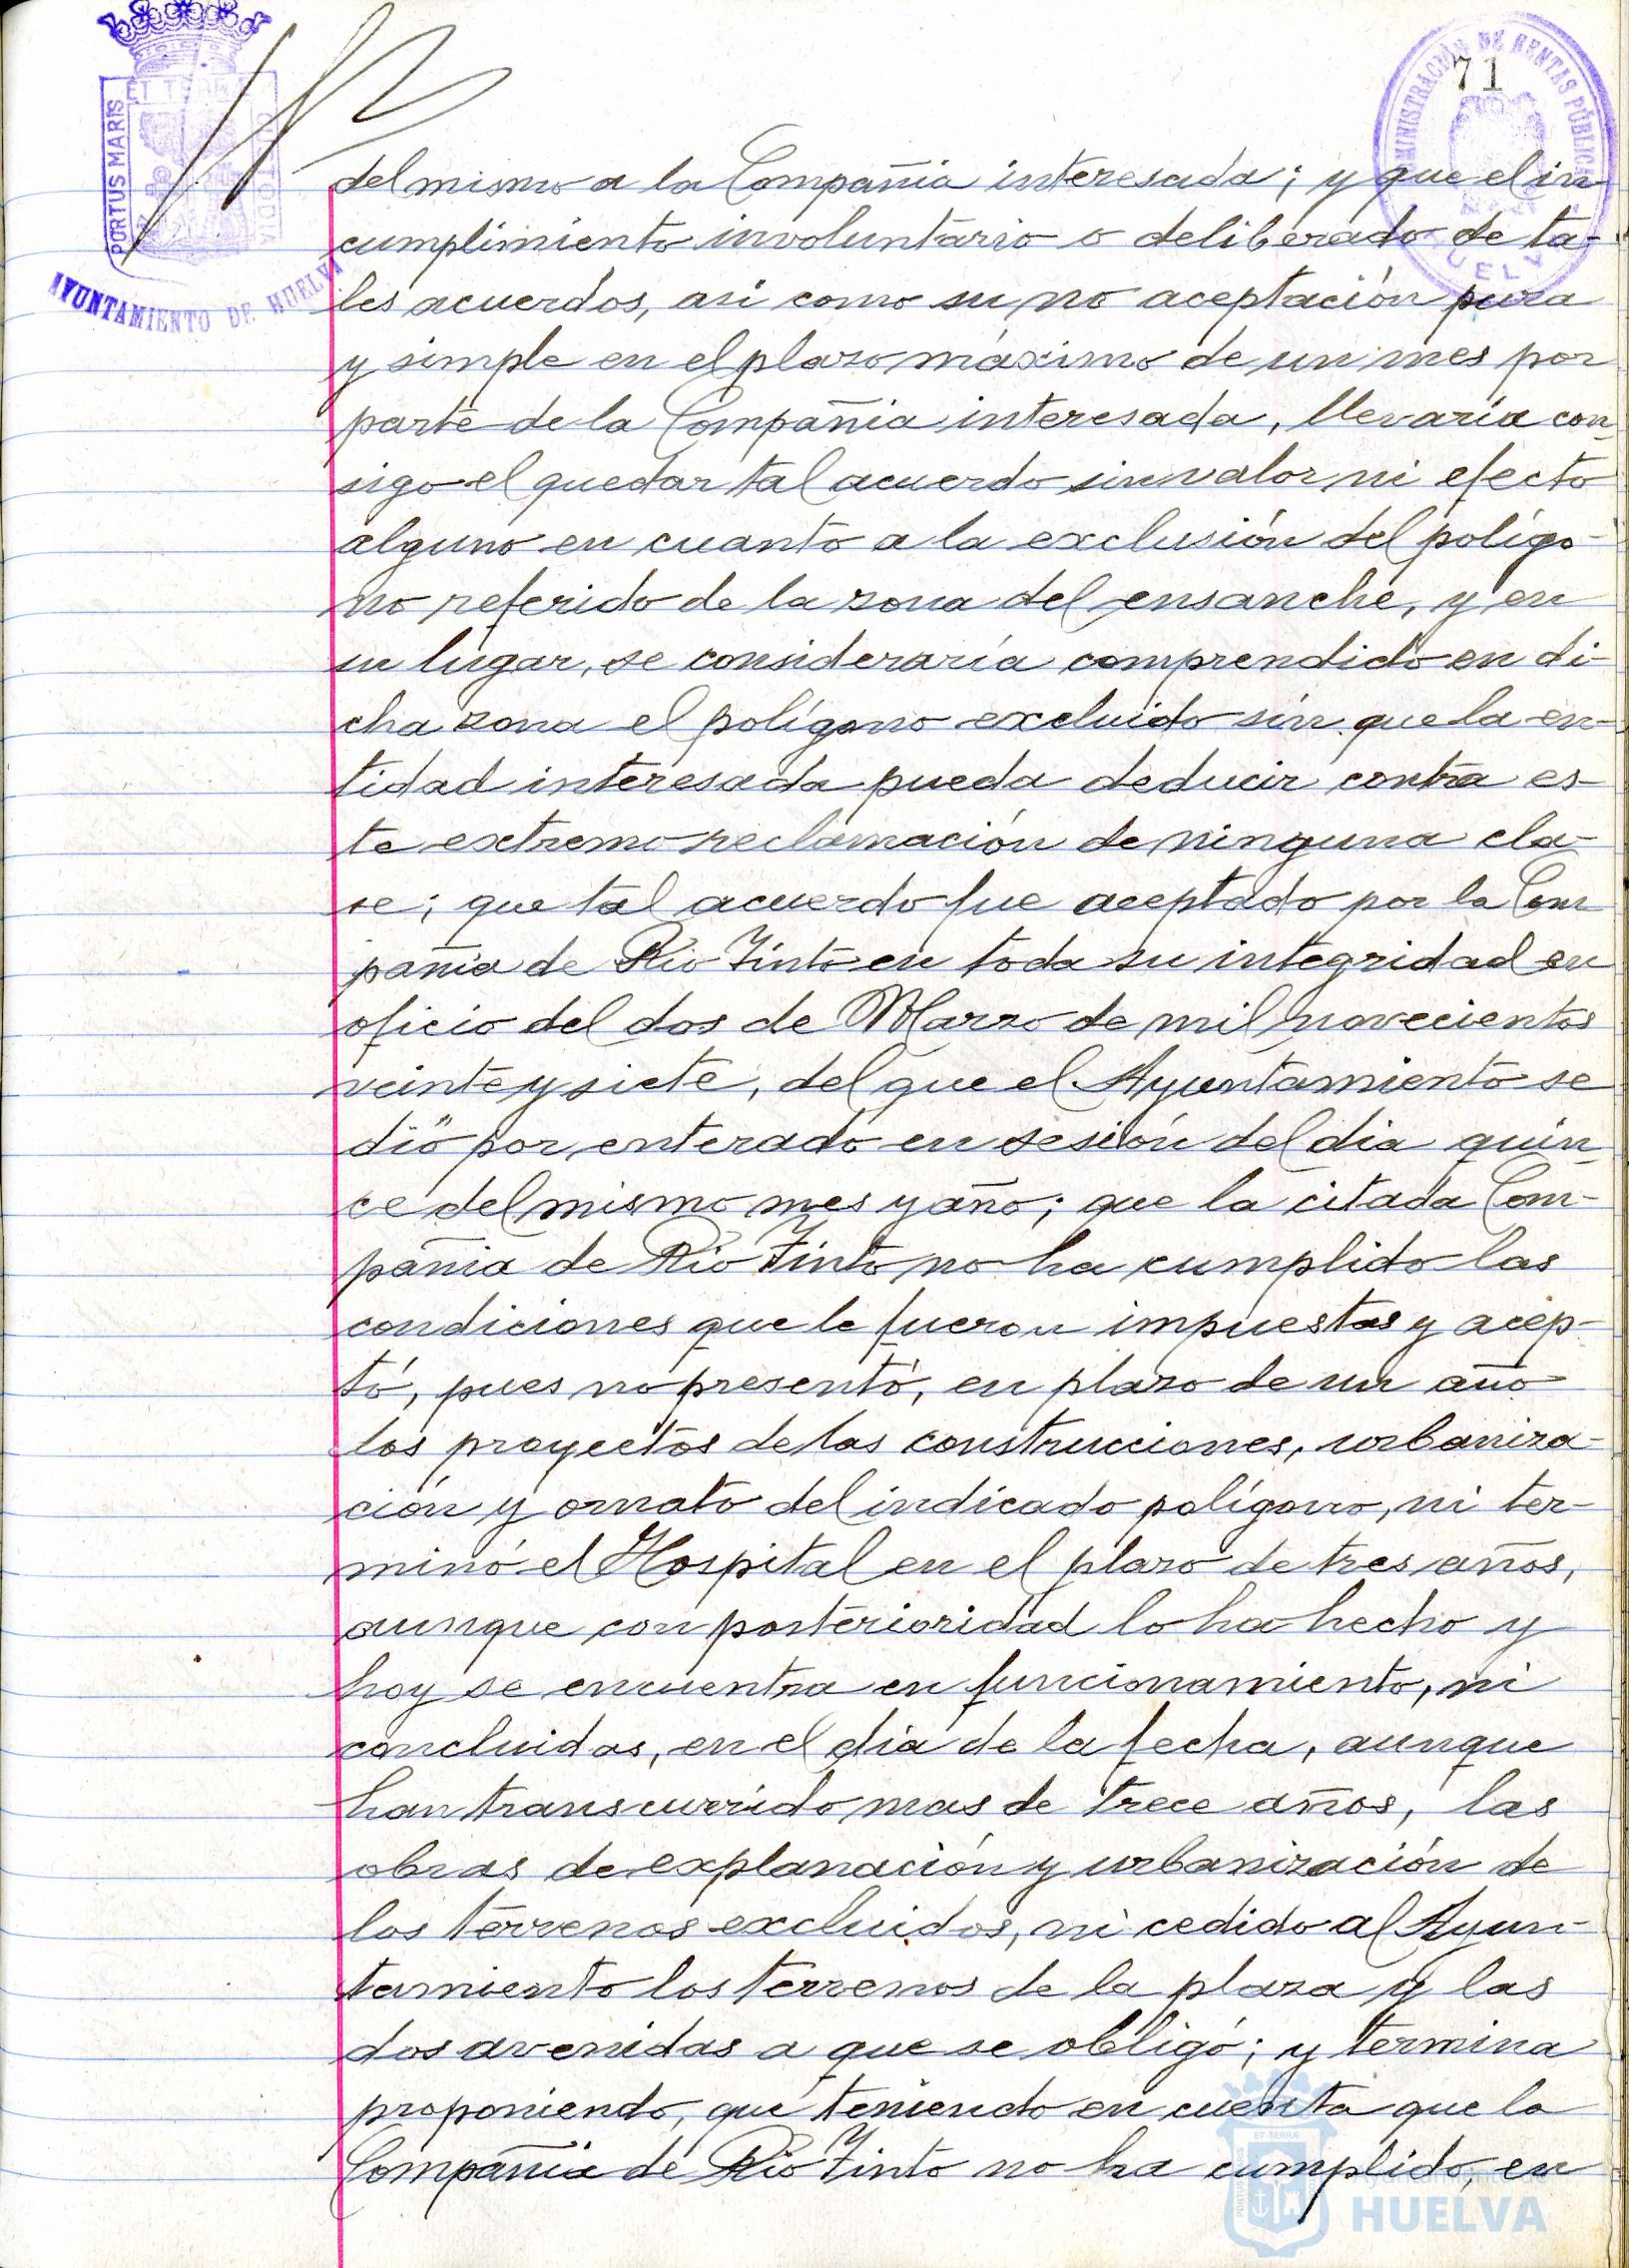 71
ADMINISTRACIÓN DE RENTAS PÚBLICAS
HUELVA
PORTUS MARIS
ET TERRÆ
CUSTODIA
AYUNTAMIENTO DE HUELVA
del mismo a la Compañia interesada; y que el in-
cumplimiento involuntario o deliberado de ta-
les acuerdos, asi como su no aceptación pura
y simple en el plazo máximo de un mes por
parte de la Compañia interesada, llevaría con-
sigo el quedar tal acuerdo sin valor ni efecto
alguno en cuanto a la exclusión del polígo-
no referido de la zona del ensanche, y en
su lugar, se consideraría comprendido en di-
cha zona el polígono excluido sin que la en-
tidad interesada pueda deducir contra es-
te extremo reclamación de ninguna cla-
se; que tal acuerdo fue aceptado por la Com
pañia de Rio Tinto en toda su integridad en
oficio del dos de Marzo de mil novecientos
veinte y siete, del que el Ayuntamiento se
dió por enterado en sesión del dia quin-
ce del mismo mes y año; que la citada Com-
pañia de Rio Tinto no ha cumplido las
condiciones que le fueron impuestas y acep-
tó, pues no presentó, en plazo de un año
los proyectos de las construcciones, urbaniza-
ción y ornato del indicado polígono, ni ter-
minó el Hospital en el plazo de tres años,
aunque con posterioridad lo ha hecho y
hoy se encuentra en funcionamiento, ni
concluidas, en el dia de la fecha, aunque
han transcurrido mas de trece años, las
obras de explanación y urbanización de
los terrenos excluidos, ni cedido al Ayun-
tamiento los terrenos de la plaza y las
dos avenidas a que se obligó; y termina
proponiendo, que teniendo en cuenta que la
Compañia de Rio Tinto no ha cumplido, en
HUELVA